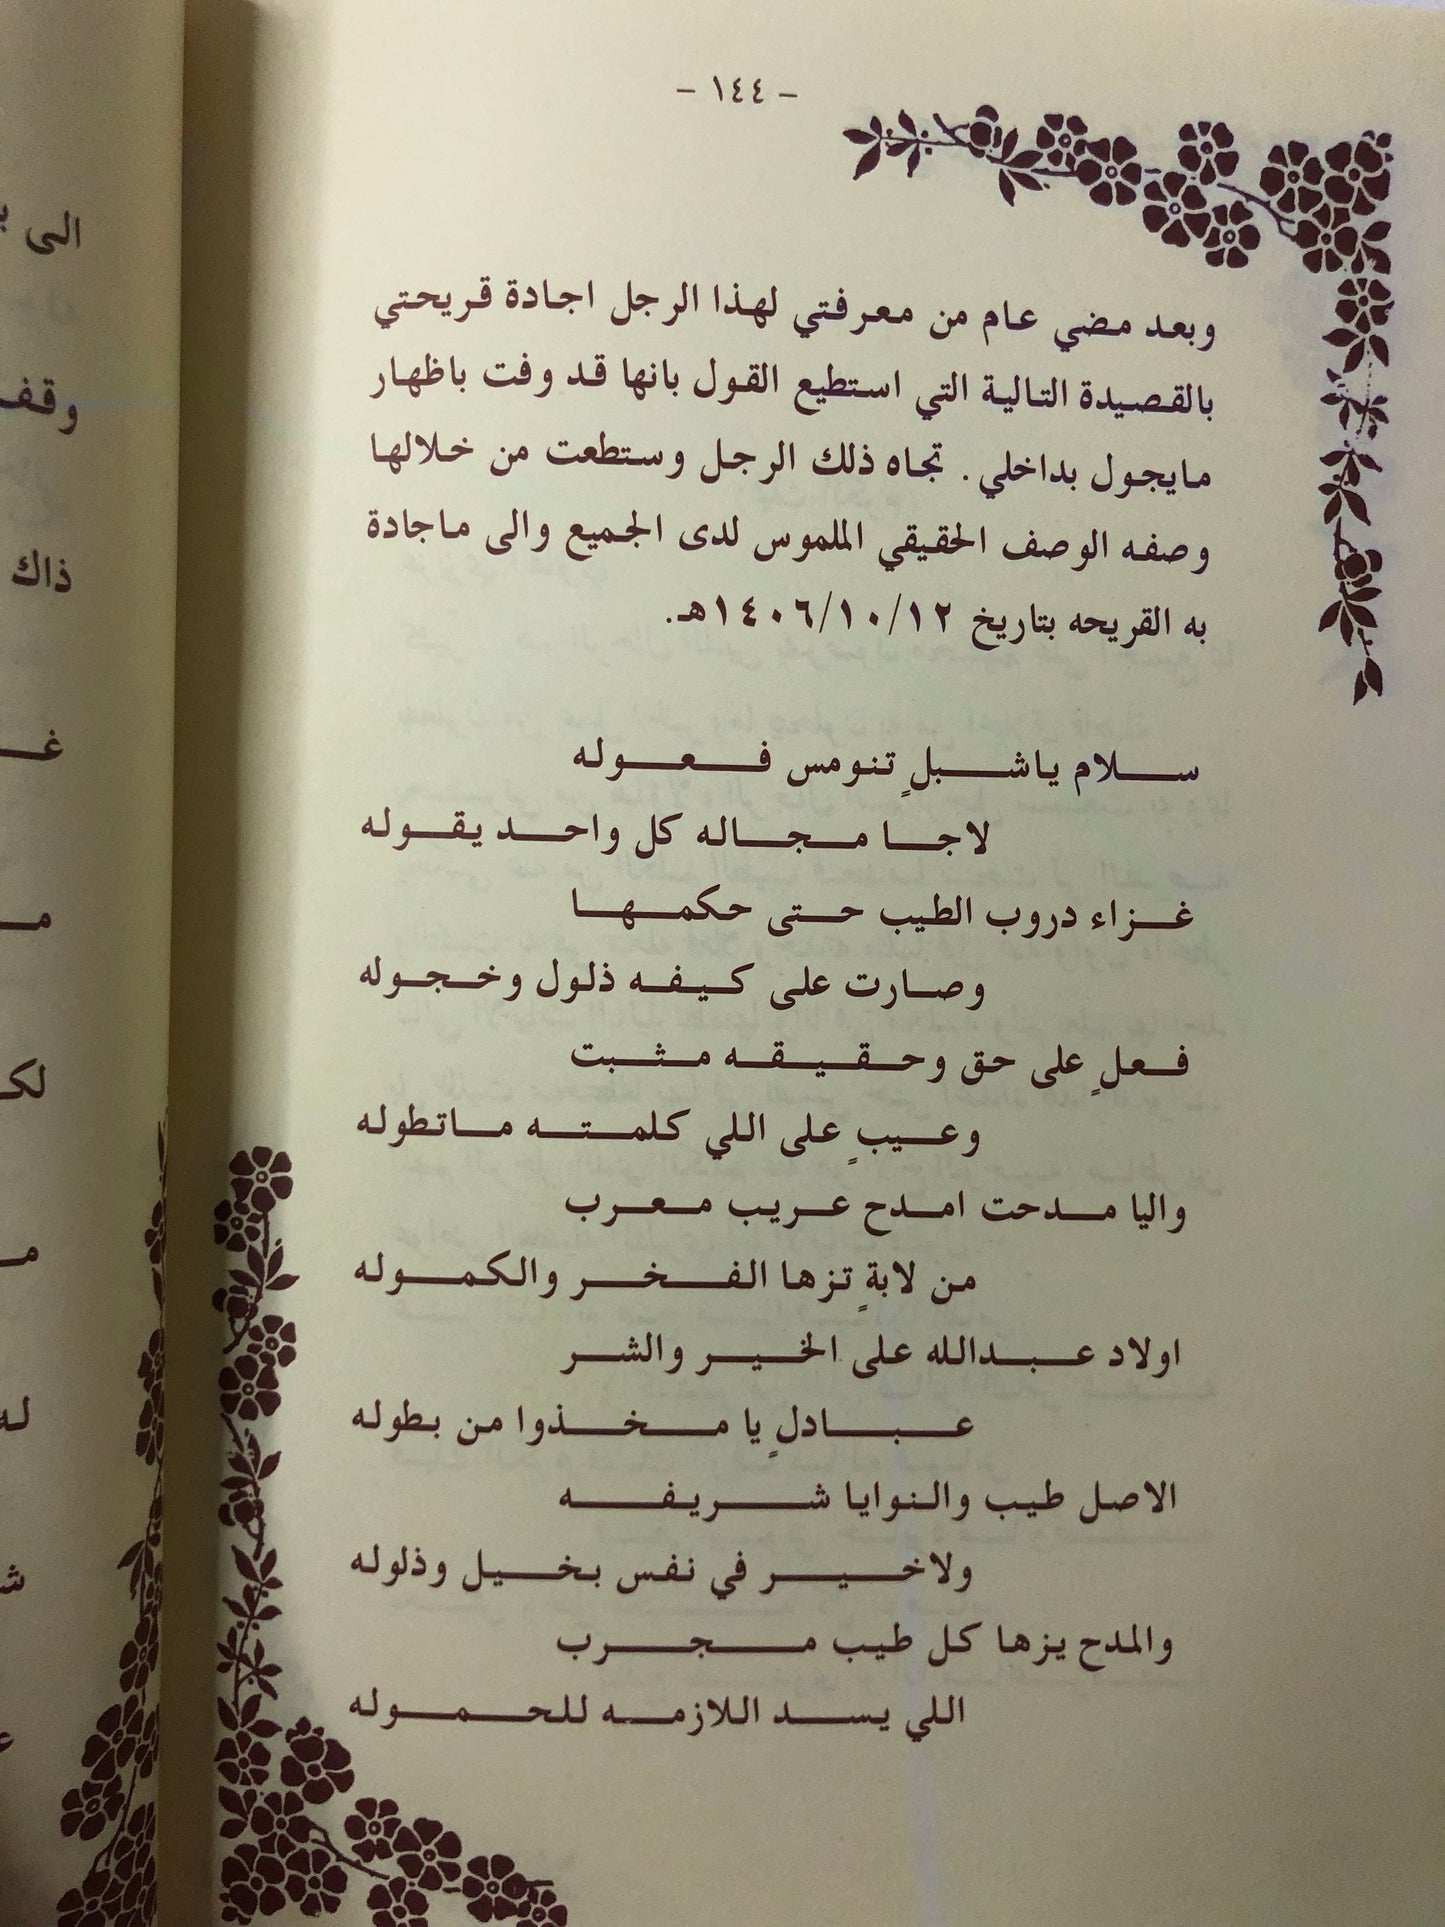 - ١٤٤ -
وبعد مضي عام من معرفتي لهذا الرجل اجادة قريحتي
بالقصيدة التالية التي استطيع القول بانها قد وفت باظهار
مايجول بداخلي. تجاه ذلك الرجل وستطعت من خلالها
وصفه الوصف الحقيقي الملموس لدى الجميع والى ماجادة
به القريحه بتاريخ ١٤٠٦/١٠/١٢هـ.
سلام ياشبلٍ تنومس فعوله
لاجا مجاله كل واحد يقوله
غزاء دروب الطيب حتى حكمها
وصارت على كيفه ذلول وخجوله
فعلٍ على حق وحقيقه مثبت
وعيبٍ على اللي كلمته ماتطوله
واليا مدحت امدح عريب معرب
من لابةٍ تزها الفخر والكموله
اولاد عبدالله على الخير والشر
عبادلٍ يا مخذوا من بطوله
الاصل طيب والنوايا شريفه
ولاخير في نفس بخيل وذلوله
والمدح يزها كل طيب مجرب
اللي يسد اللازمه للحموله
الى
وقف
ذاك